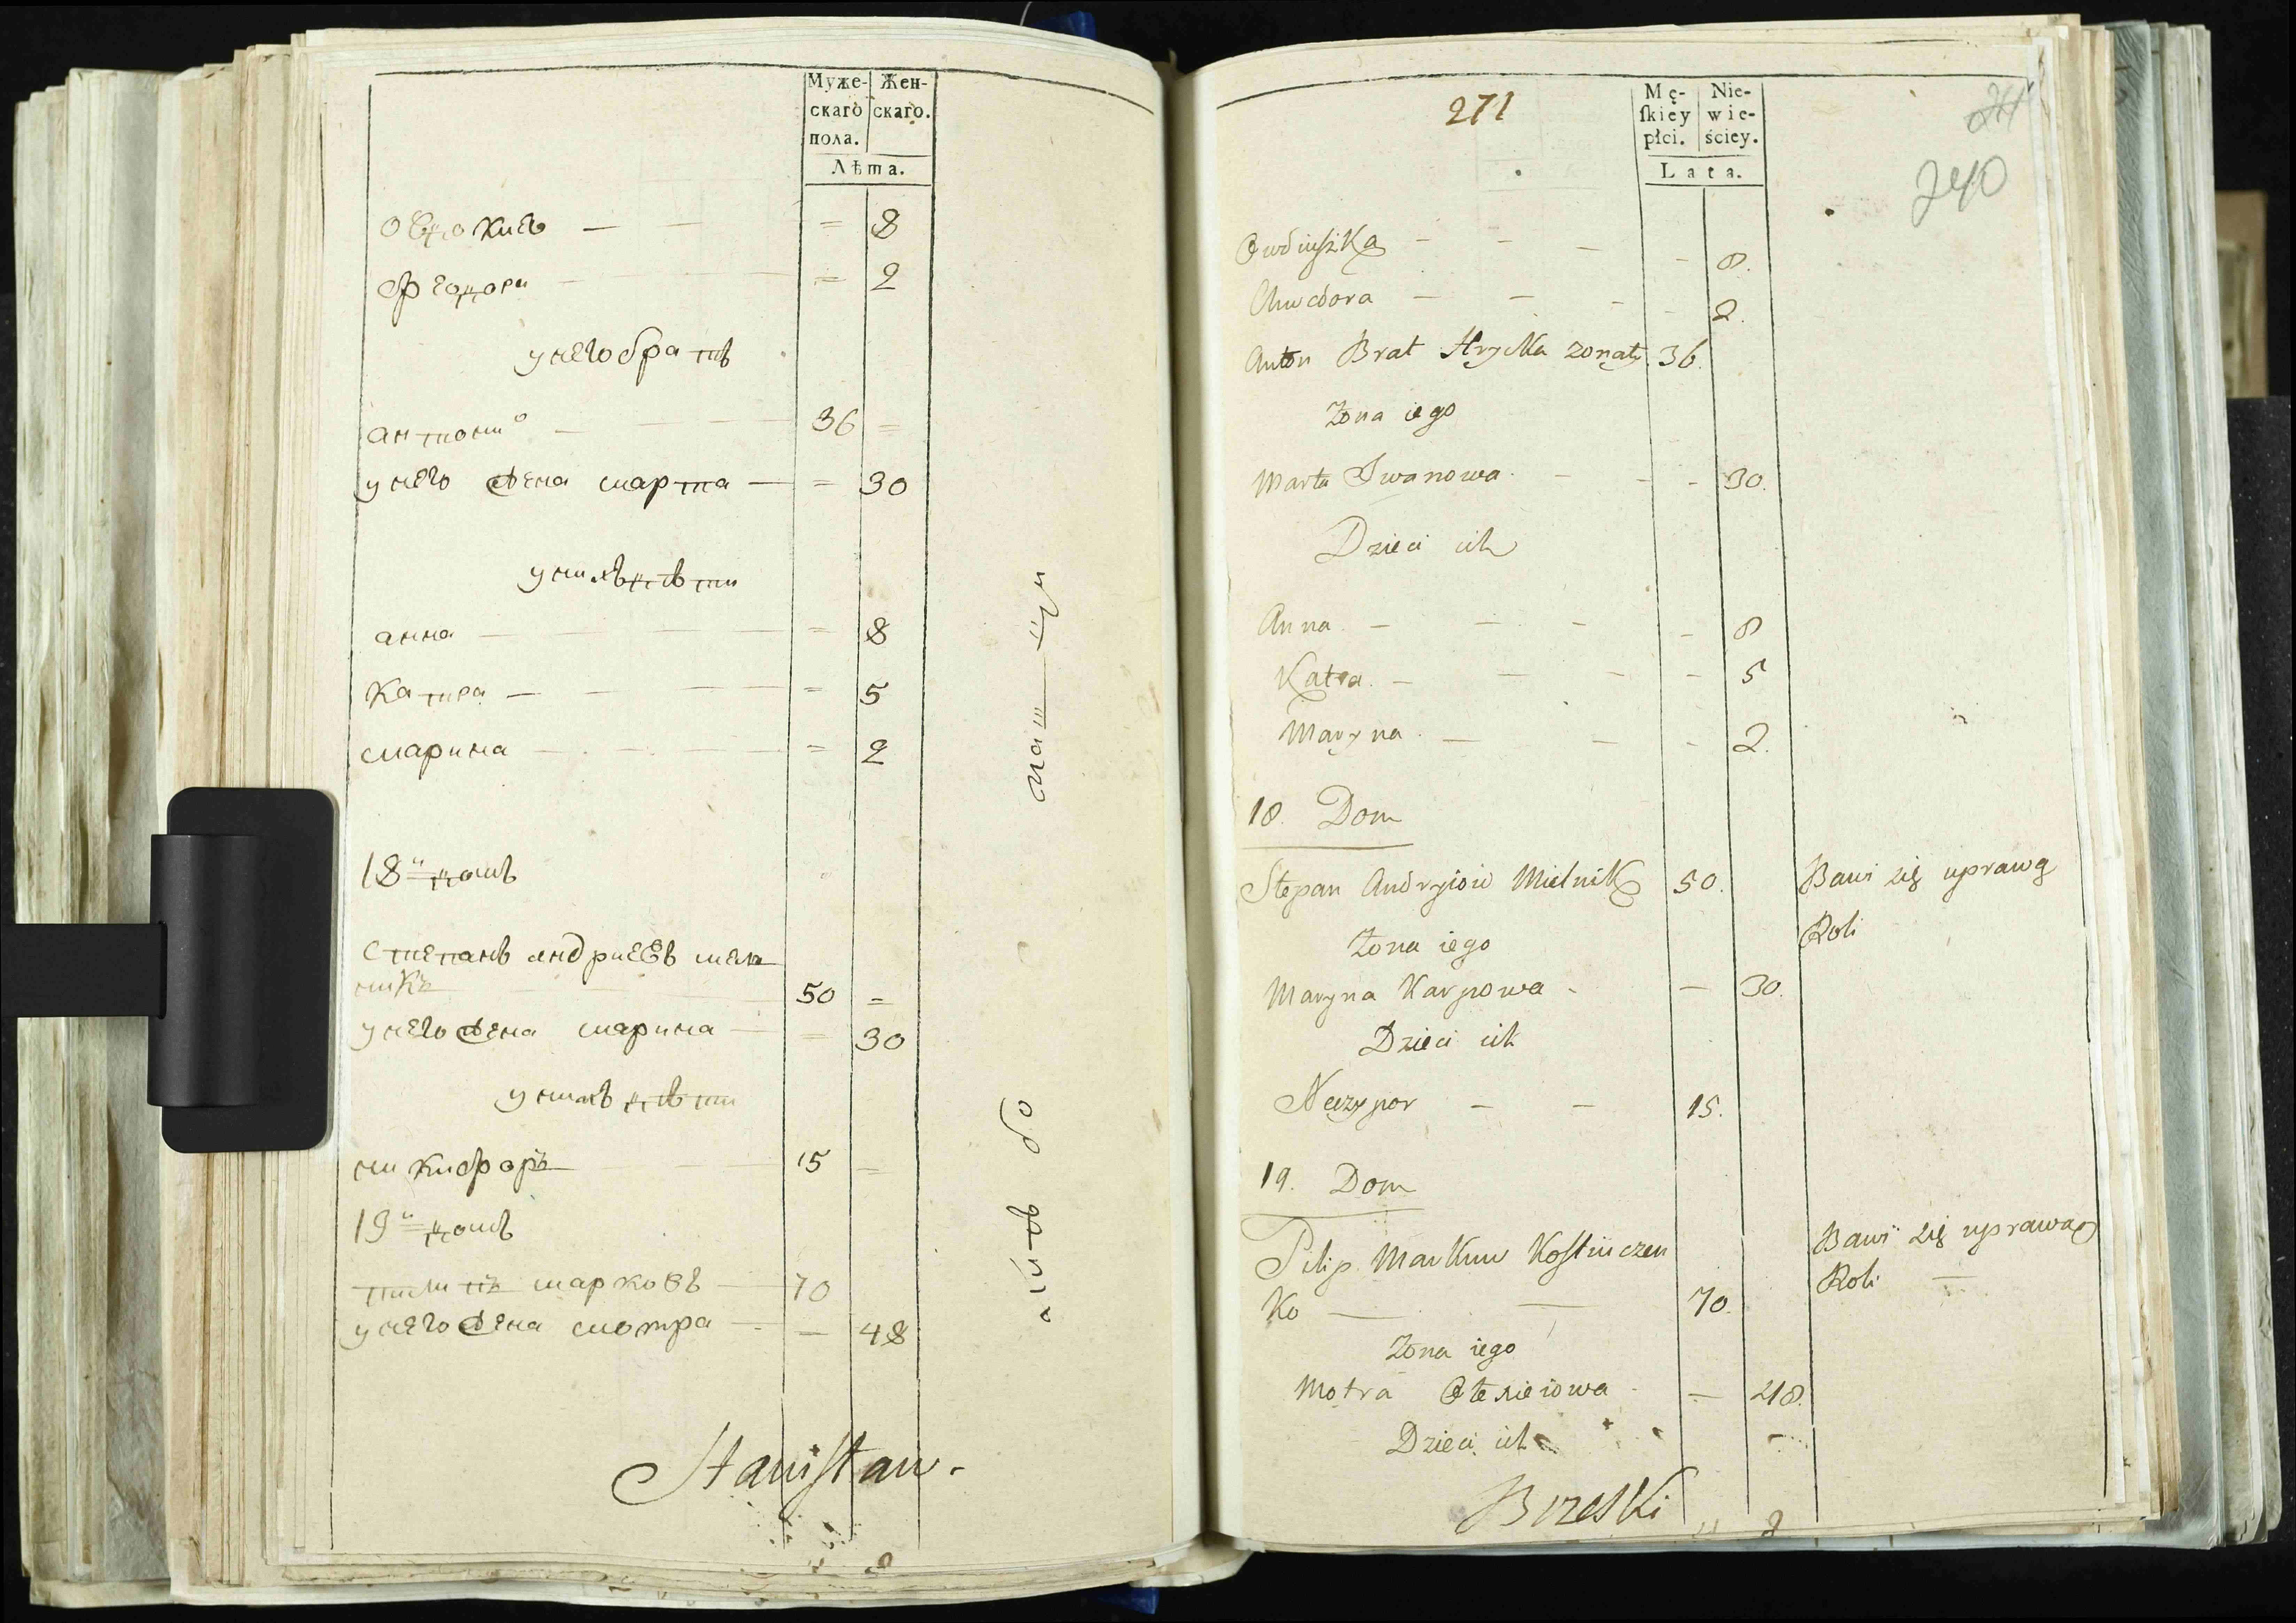 Муже- Жен-
скаго скаго.
пола.
Лѣта.
овдокиѣ — — = 8
феодора — = 2
унего братъ
антонио — 36 =
унего жена марта — = 30
унихъ дѣти
анна — = 8
Катра — — = 5
марина — = 2
18й домъ
Степанъ андриевъ мел
никъ 50 =
унего жена марина — = 30
унихъ дѣти
никифоръ 15 =
19й домъ
пилипъ марковъ — 70
унего жена мотра — — 48
Stanisław.
271
240
Mę- Nie-
ſkiey wie-
płci. ściey.
Lata.
Owdiuszka - - - - 8.
Chwedora - - - - 2.
Anton Brat Hrycka zonaty 36.
Żona iego
Marta Iwanowa - - - 30.
Dzieci ich
Anna - - - - 8
Katra. - - - - 5
Maryna - - - 2.
18. Dom
Stepan Andryiow Mielnik 50. Bawi się uprawą
Żona iego Roli
Maryna Karpowa - — 30.
Dzieci ich
Neczypor - - 15.
19. Dom
Pilip Markuw Kostiuczen Bawi się uprawą
Ko — — 70. Roli —
Żona iego
Motra Ołexieiowa - — 48.
Dzieci ich
Brzeski